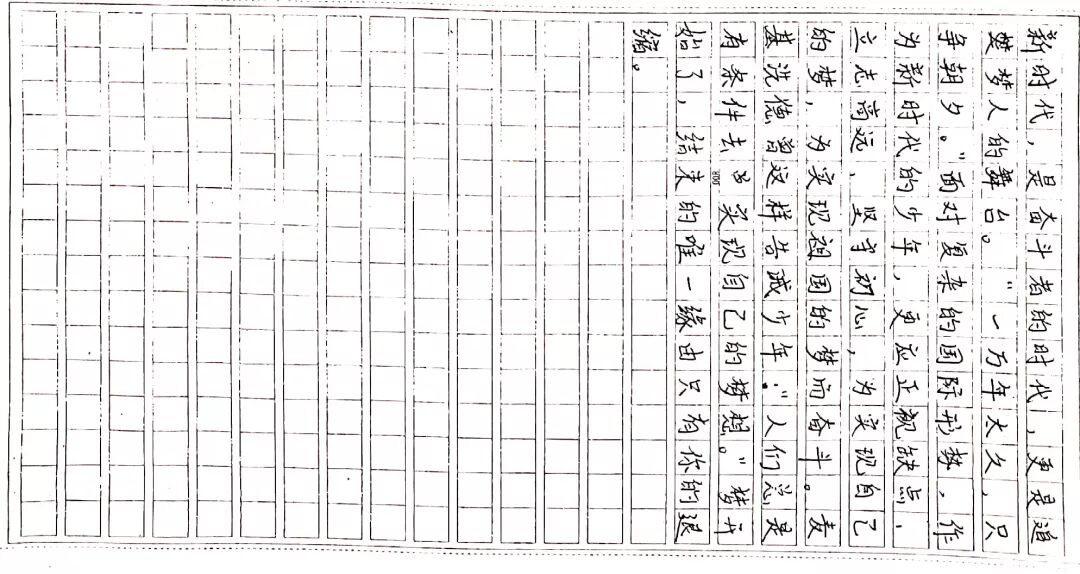 新时代,是奋斗者的时代,更是追
梦人的舞台。"一万年太久,只
争朝夕。"面对复杂的国际形势,作
为新时代的少年,更应正视缺点,
立志高远,坚守初心,为实现自己
的梦,为实现祖国的梦而奋斗。麦
基洗德曾这样告诫少年:"人们总是
有条件去实现自己的梦想。"梦开
800
始了,结束的唯一缘由只有你的退
缩。